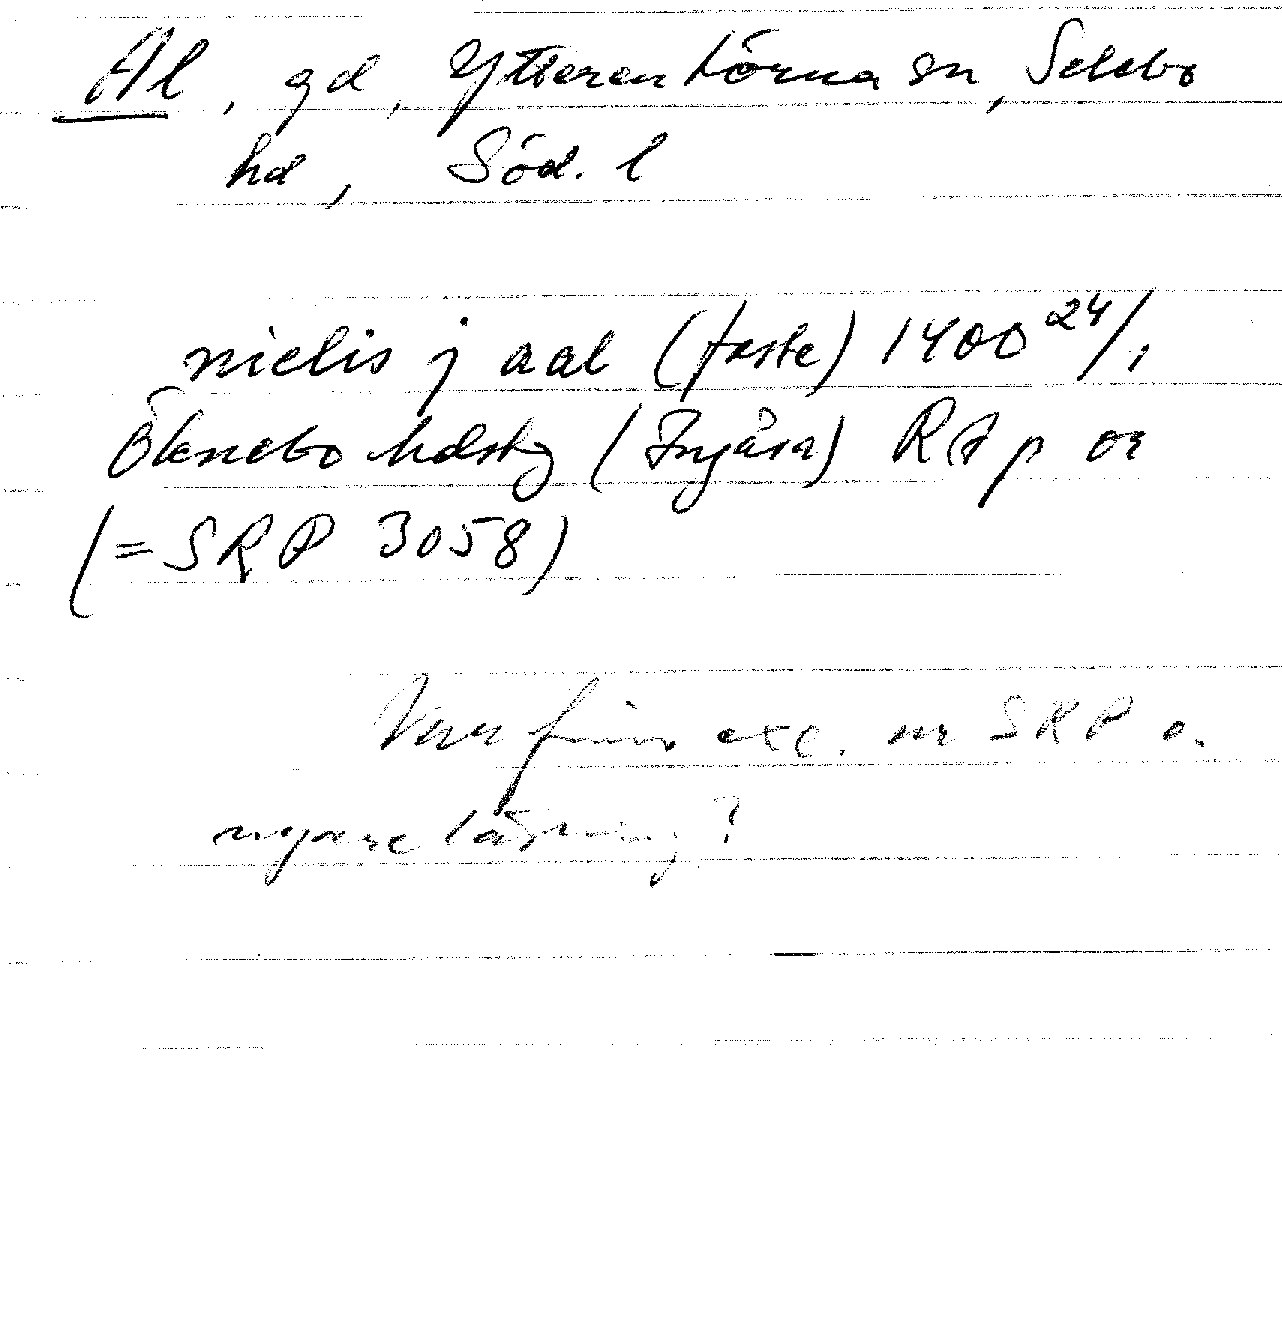 Al, gd, Ytterenhörna sn, Selebo
hd, Söd. l
nielis j aal (faste) 1400 24/1
Öknebo hdstg (Ingåsa) RAp or
(= SRP 3058)
Var finns exc. ur SRP o.
nyare läsning?